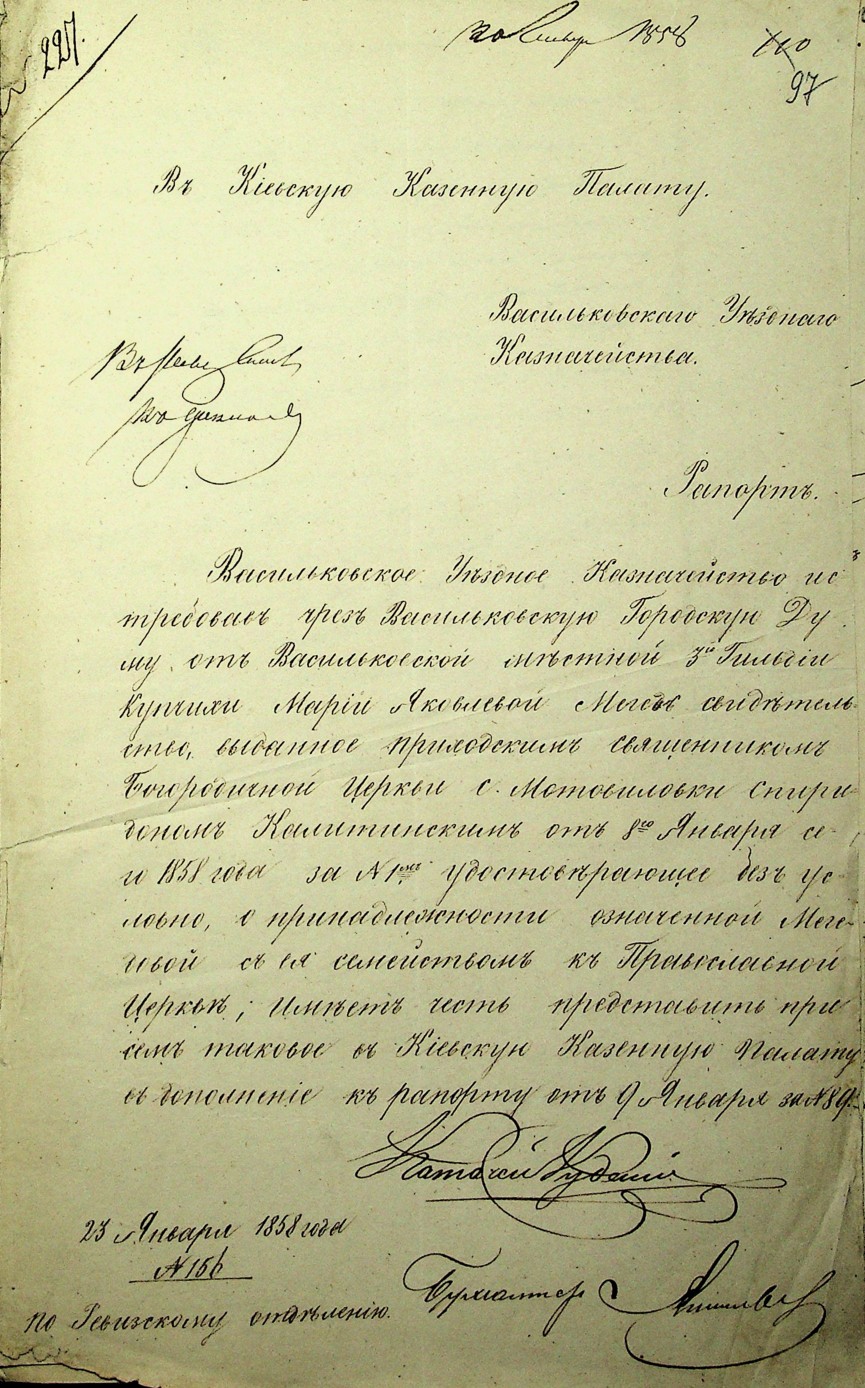 227.
Января 1858
97
Въ Кіевскую Казенную Палату.
Васильковскаго Уѣзднаго
Казначейства.
Рапортъ.
Васильковское Уѣздное Казначейство ис
требовавъ чрезъ Васильковскую Городскую Ду
му отъ Васильковской мѣстной 3й Гильдіи
Купчихи Маріи Яковлевой свидѣтель
ство, выданное приходскимъ священникомъ
Богородичной Церкви с. Мотовиловки Спири
дономъ Калитинскимъ отъ 8го Января се
го 1858 года за № 1мъ удостовѣрающее безъ ус
ловно, о принадлежности означенной
съ ея семействомъ къ Православной
Церквѣ; имѣетъ честь представить при
семъ таковое въ Кіевскую Казенную Палату
въ дополненіе къ рапорту отъ 9 Января за № 89.
23 Января 1858 года
№ 156
Бухгалтеръ
по Ревизскому отдѣленію.